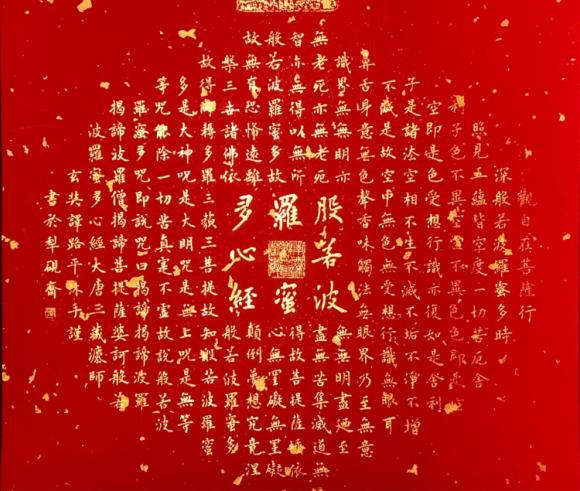 觀自在菩薩行
深般若波羅蜜多時
照見五蘊皆空度一切苦厄舍
利子色不異空空不異色色即是空
空即是色受想行識亦復如是舍利
子是諸法空相不生不滅不垢不淨不增
不減是故空中無色無受想行識無眼耳
鼻舌身意無色聲香味觸法無眼界乃至無意
識界無無明亦無無明盡乃至
無老死亦無老死盡無苦集滅道無
智亦無得以無所得故菩提薩埵依
般若波羅蜜多故心無罣礙無罣礙
故無有恐怖遠離顛倒夢想究竟涅
槃三世諸佛依般若波羅蜜多
故得阿耨多羅三藐三菩提故知般若波羅蜜
多是大神咒是大明咒是無上咒是無等
等咒能除一切苦真實不虛故說般若波
羅蜜多咒即說咒曰揭諦揭諦波羅
揭諦波羅僧揭諦菩提薩婆訶般若
波羅蜜多心經大唐三藏法師
玄奘譯路平沐手謹
書於梨硯齋
般若波
羅蜜
多心經